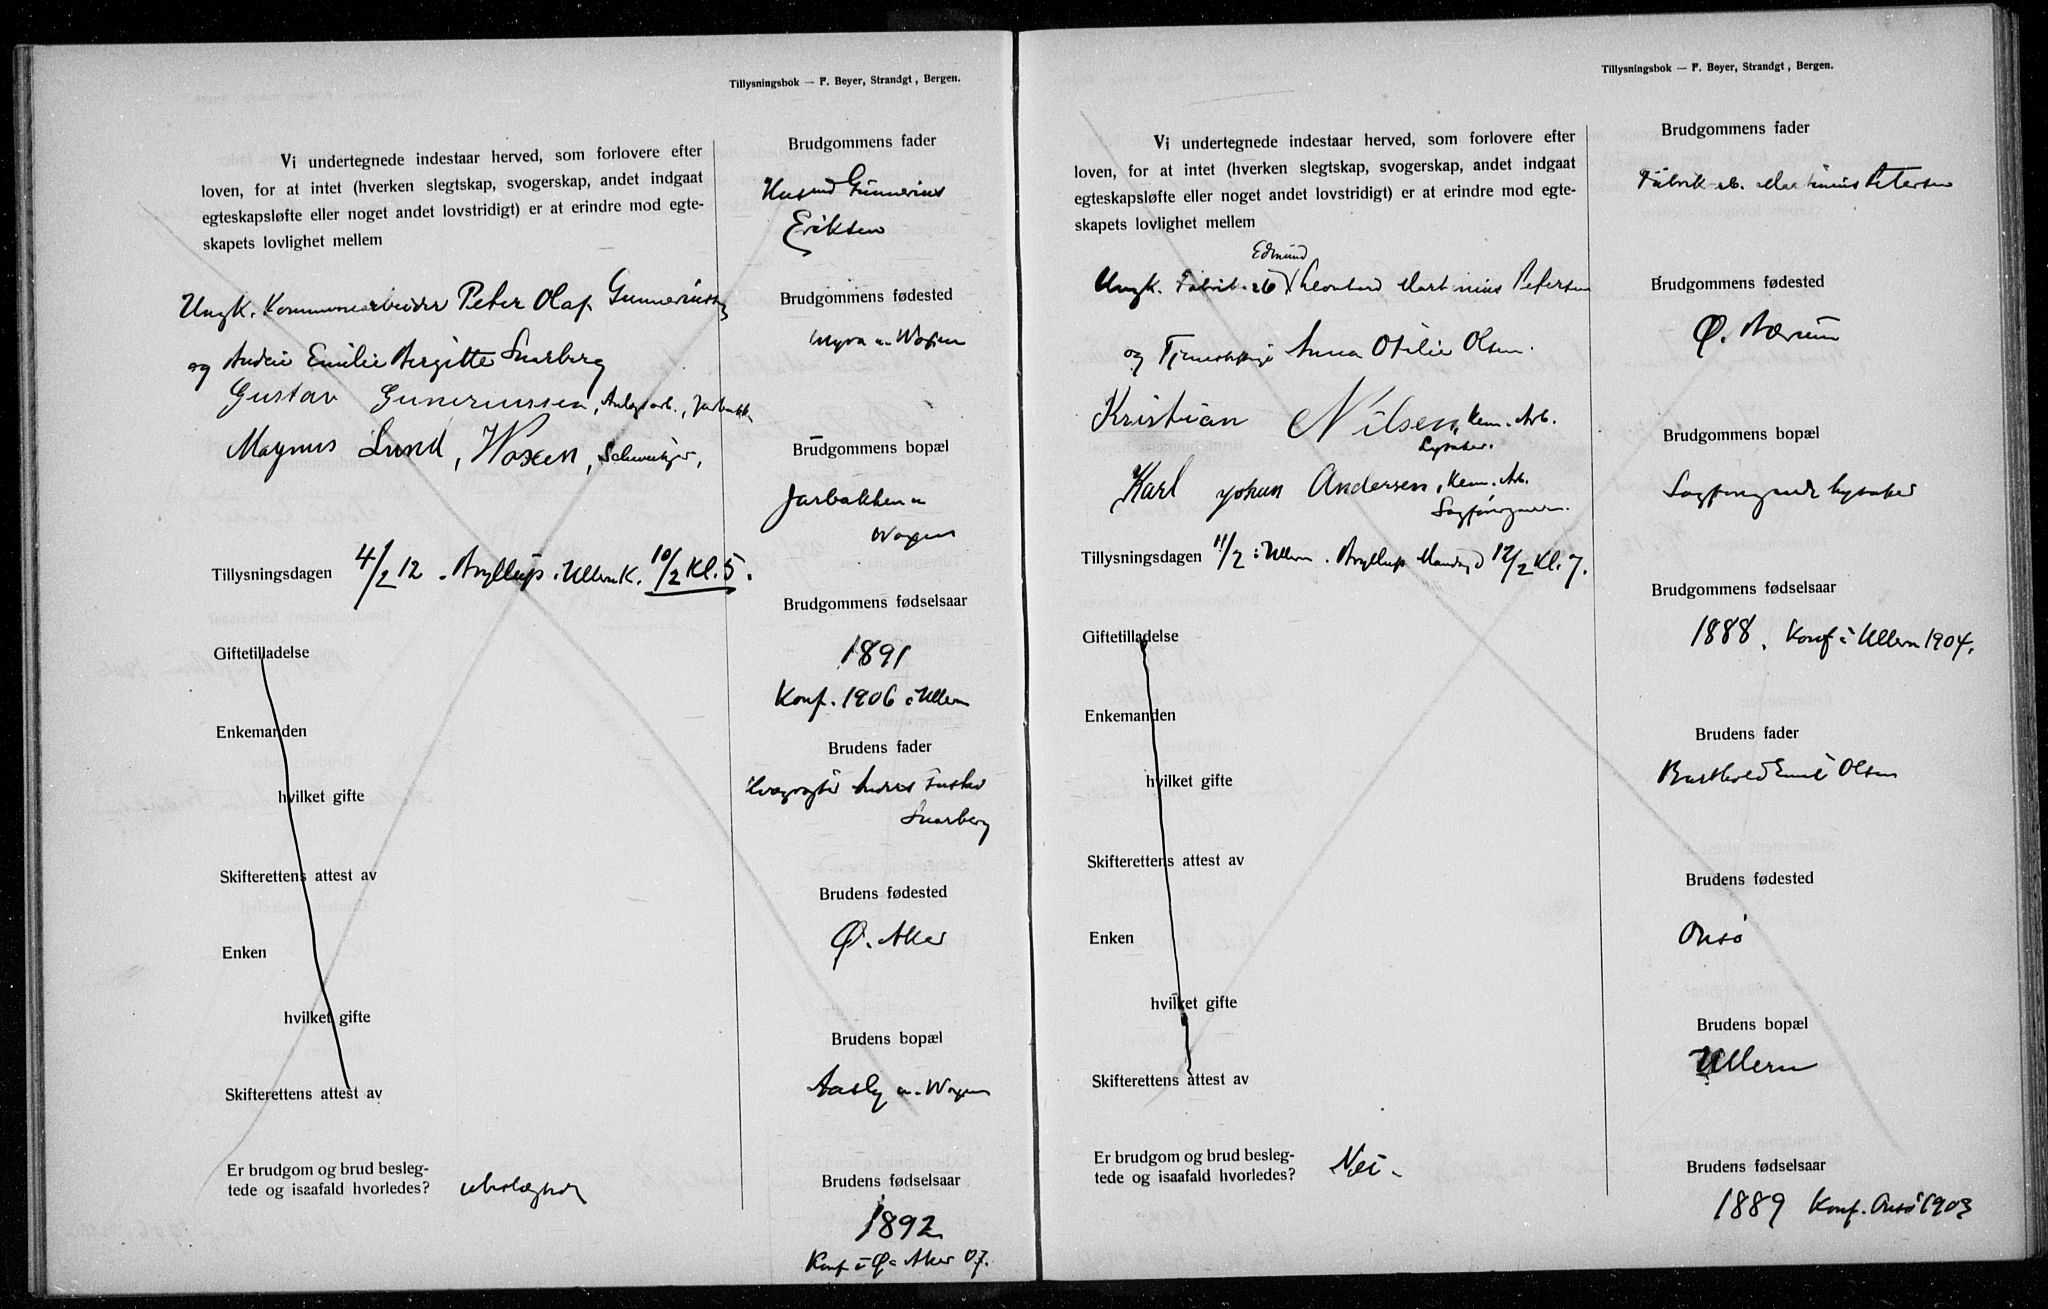 Tillysningsbok — F. Beyer, Strandgt, Bergen.
Vi undertegnede indestaar herved, som forlovere efter
loven, for at intet (hverken slegtskap, svogerskap, andet indgaat
egteskapsløfte eller noget andet lovstridigt) er at erindre mod egte-
skapets lovlighet mellem
Ungk. Kommunearbeider Peter Olaf Gunneriussen
og Emilie Birgitte Snarberg
Gustav Guneriussen, Anlegsarb., Jarbakk.
Magnus Lund, Woxen,
Tillysningsdagen 4/2 12. Bryllup i Ullern K. 10/2 Kl. 5.
Giftetilladelse
Enkemanden
hvilket gifte
Skifterettens attest av
Enken
hvilket gifte
Skifterettens attest av
Er brudgom og brud besleg-
tede og isaafald hvorledes? ubeslegtede
Brudgommens fader
Husmd Gunnerius
Eriksen
Brudgommens fødested
Myra u. Woxen
Brudgommens bopæl
Jarbakken u
Woxen
Brudgommens fødselsaar
1891
Konf. 1906 i Ullern
Brudens fader
Gustav
Snarberg
Brudens fødested
Ø. Aker
Brudens bopæl
Aasly u. Woxen
Brudens fødselsaar
1892
Konf i Ø. Aker 07.
Tillysningsbok — F. Beyer, Strandgt, Bergen.
Vi undertegnede indestaar herved, som forlovere efter
loven, for at intet (hverken slegtskap, svogerskap, andet indgaat
egteskapsløfte eller noget andet lovstridigt) er at erindre mod egte-
skapets lovlighet mellem
Edmund
Ungk. Fabrik. ab Leonhard Martinius Petersen
og Tjenestepige Anna Otilie Olsen.
Kristian Nilsen, Kem. Arb.
Lysaker.
Karl Johan Andersen, Kem. Arb.
Tillysningsdagen 11/2 i Ullern. Bryllup Mandag d 12/2 Kl. 7.
Giftetilladelse
Enkemanden
hvilket gifte
Skifterettens attest av
Enken
hvilket gifte
Skifterettens attest av
Er brudgom og brud besleg-
tede og isaafald hvorledes? Nei.
Brudgommens fader
Fabrik ab. Martinius Petersen
Brudgommens fødested
Ø. Bærum
Brudgommens bopæl
Lysaker
Brudgommens fødselsaar
1888. Konf i Ullern 1904.
Brudens fader
Barthold Emil Olsen
Brudens fødested
Onsø
Brudens bopæl
Ullern
Brudens fødselsaar
1889 Konf. Onsø 1903